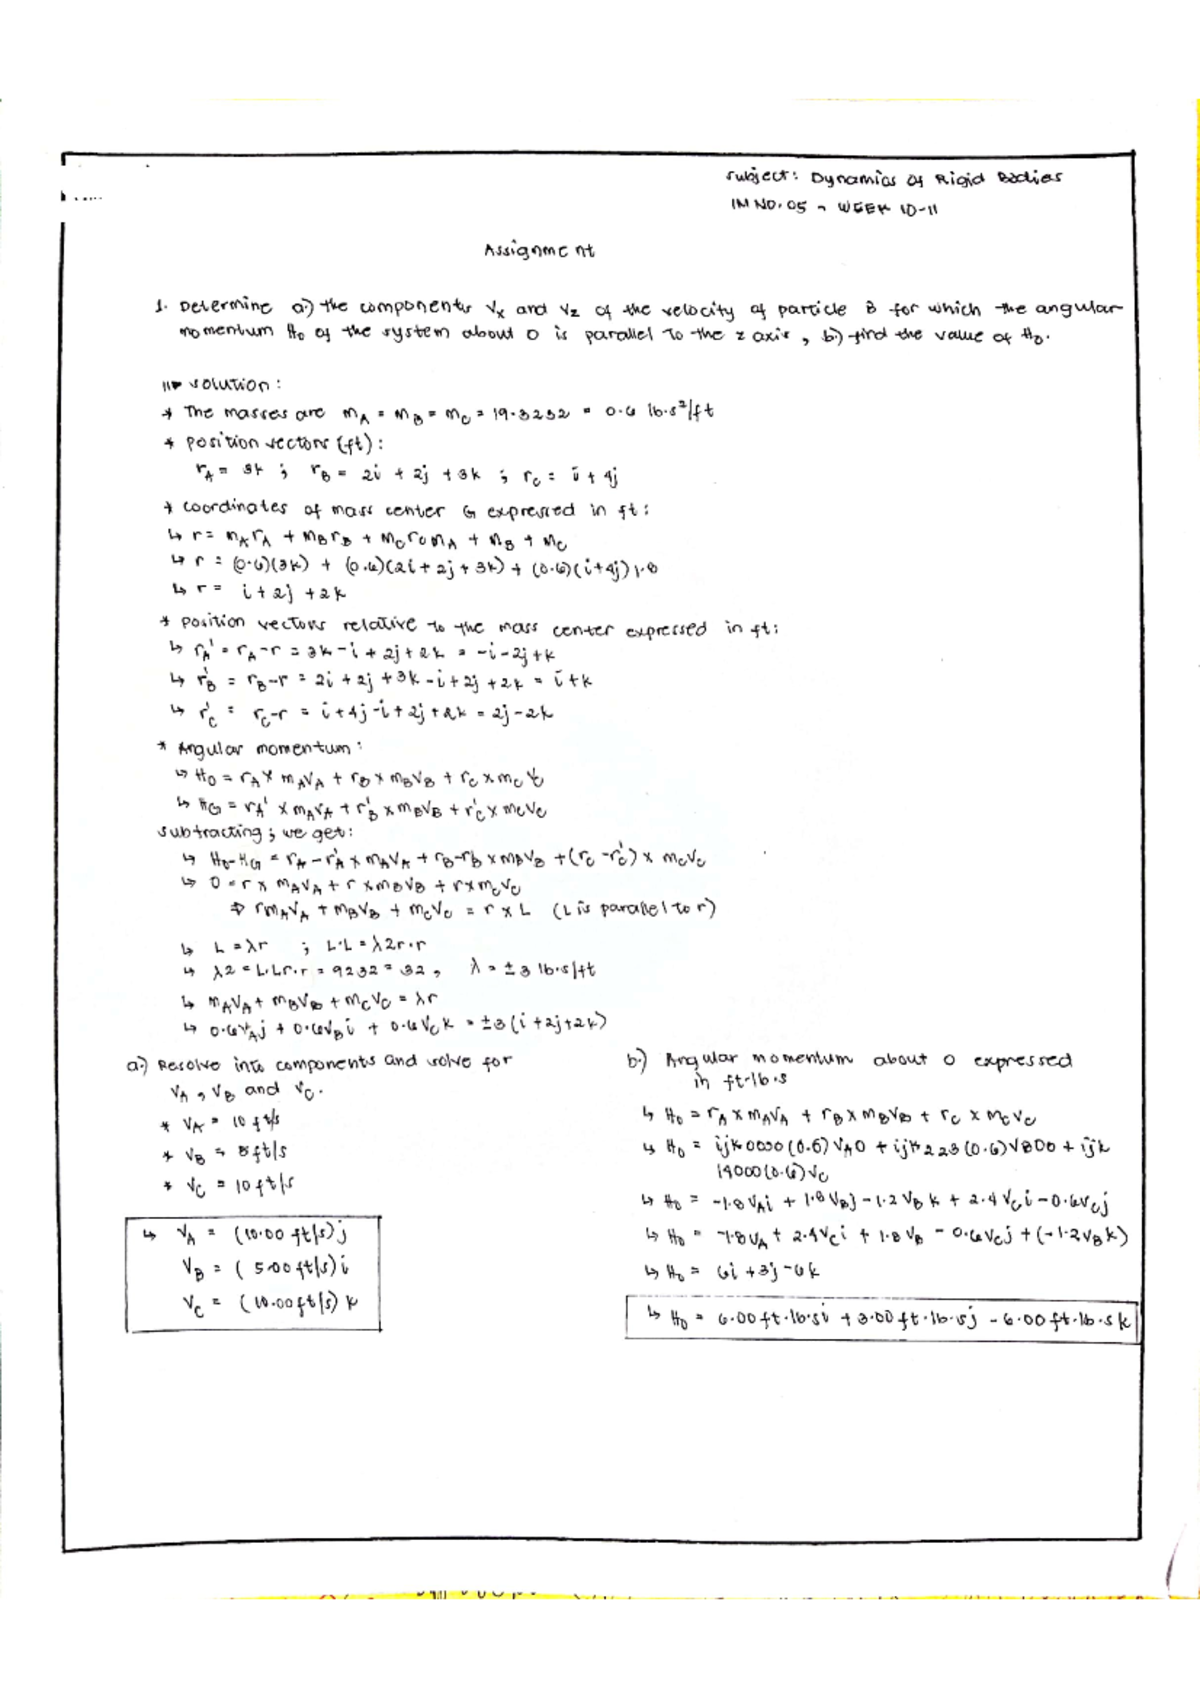 Subject: Dynamics of Rigid Bodies
IM NO. 05 - WEEK 10-11
Assignment
1. Determine a.) the components Vx and Vz of the velocity of particle B for which the angular
momentum Ho of the system about O is parallel to the z axis, b.) find the value of Ho.
solution:
* The masses are mA = mB = mC = 19.3232 = 0.6 lb·s²/ft
* position vectors (ft):
rA = 3k ; rB = 2i + 2j + 3k ; rC = i + 4j
* coordinates of mass center G expressed in ft:
↳ r = mArA + mBrB + mCrCmA + mB + mC
↳ r = (0.6)(3k) + (0.6)(2i + 2j + 3k) + (0.6)(i+4j)1.8
↳ r = i + 2j + 2k
* position vectors relative to the mass center expressed in ft:
↳ rA' = rA-r = 3k-i + 2j + 2k = -i-2j+k
↳ rB' = rB-r = 2i + 2j + 3k-i+2j+2k = i+k
↳ rC' = rC-r = i+4j-i+2j+2k = 2j-2k
* Angular momentum:
↳ Ho = rA x mAVA + rB x mBVB + rC x mCVC
↳ HG = rA' x mAVA + rB' x mBVB + rC' x mCVC
subtracting; we get:
↳ Ho-HG = rA-rA' x mAVA + rB-rB' x mBVB + (rC-rC') x mCVC
↳ 0 = r x mAVA + r x mBVB + r x mCVC
⇒ rmAVA + mBVB + mCVC = r x L (L is parallel to r)
↳ L = λr ; L·L = λ2r·r
↳ λ2 = L·Lr·r = 9232 = 32, λ = ±3 lb·s/ft
↳ mAVA + mBVB + mCVC = λr
↳ 0.6VAj + 0.6VBi + 0.6VCk = ±3(i+2j+2k)
a.) Resolve into components and solve for
VA, VB and VC.
* VA = 10 ft/s
* VB = 5ft/s
* VC = 10ft/s
↳ VA = (10.00 ft/s)j
VB = (5.00ft/s)i
VC = (10.00ft/s)k
b.) Angular momentum about O expressed
in ft·lb·s
↳ Ho = rA x mAVA + rB x mBVB + rC x mCVC
↳ Ho = ijk0030(0.6)VA0 + ijk223(0.6)VB00 + ijk
14000(0.6)VC
↳ Ho = -1.8VAi + 1.8VBj-1.2VBk + 2.4VCi-0.6VCj
↳ Ho = -1.8VA + 2.4VCi + 1.8VB - 0.6VCj + (-1.2VBk)
↳ Ho = 6i+3j-6k
↳ Ho = 6.00ft·lb·si + 3.00ft·lb·sj - 6.00ft·lb·sk